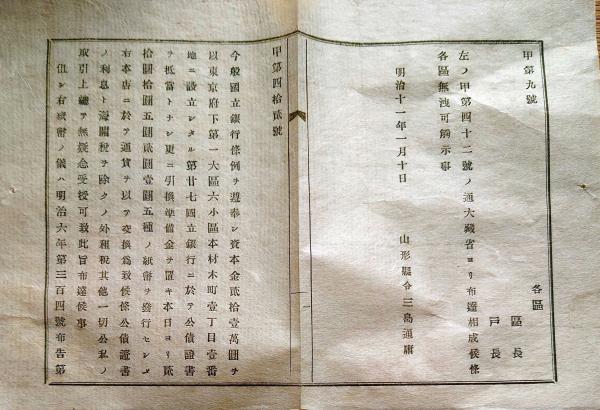 甲第九號
各區
區長
戸長
左ノ甲第四十二號ノ通大藏省ヨリ布達相成候條
各區無洩可觸示事
明治十一年一月十日
山形縣令三島通庸
甲第四拾貳號
今般國立銀行條例ヲ遵奉シ資本金貳拾壹萬圓ヲ
以東京府下第一大區六小區本材木町壹丁目壹番
地ニ設立シタル第廿七國立銀行ニ於テ公債證書
ヲ抵當トナシ更ニ引換準備金ヲ置キ本日ヨリ貳
拾圓拾圓五圓貳圓壹圓五種ノ紙幣ヲ發行セシメ
右本店ニ於テ通貨ヲ以テ交換爲致候條公債證書
ノ利息ト海關税ヲ除クノ外租税其他一切公私ノ
取引上總テ無疑念受授可致此旨布達候事
但シ右紙幣ノ儀ハ明治六年第三百四號布告第